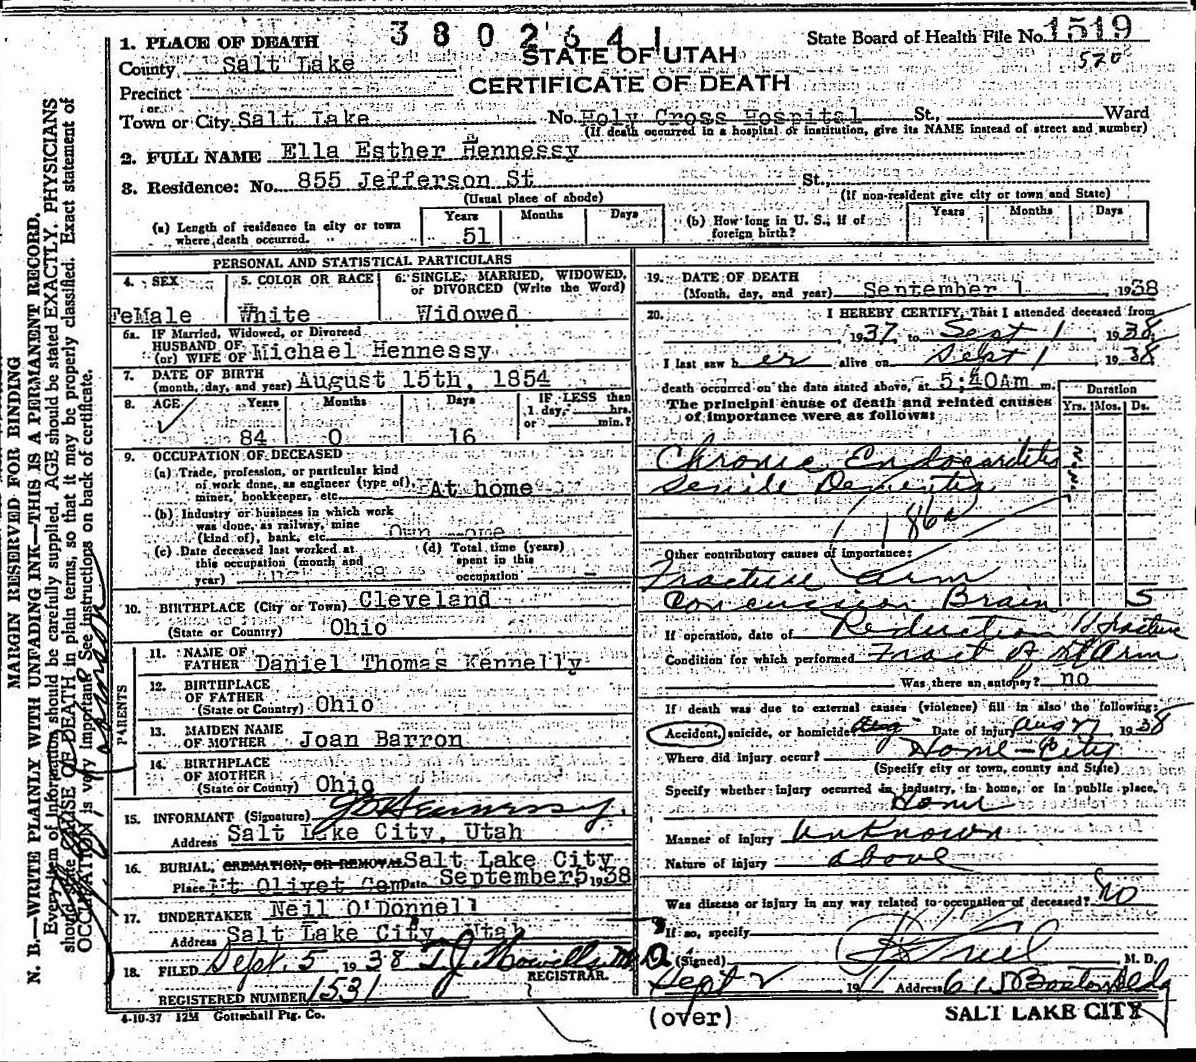 3802641
State Board of Health File No. 1519
570
STATE OF UTAH
CERTIFICATE OF DEATH
1. PLACE OF DEATH
County Salt Lake
Precinct
or
Town or City Salt Lake No. Holy Cross Hospital St., Ward
(If death occurred in a hospital or institution, give its NAME instead of street and number)
2. FULL NAME Ella Esther Hennessy
3. Residence: No. 855 Jefferson St St.,
(Usual place of abode) (If non-resident give city or town and State)
(a) Length of residence in city or town where death occurred. Years 51 Months Days
(b) How long in U. S., if of foreign birth? Years Months Days
PERSONAL AND STATISTICAL PARTICULARS
4. SEX FeMale
5. COLOR OR RACE White
6. SINGLE, MARRIED, WIDOWED, or DIVORCED (Write the Word) Widowed
6a. IF Married, Widowed, or Divorced
HUSBAND OF
(or) WIFE OF Michael Hennessy
7. DATE OF BIRTH
(month, day, and year) August 15th, 1854
8. AGE Years 84 Months 0 Days 16 IF LESS than 1 day, hrs. or min.?
9. OCCUPATION OF DECEASED
(a) Trade, profession, or particular kind
of work done, as engineer (type of),
miner, bookkeeper, etc. At home
(b) Industry or business in which work
was done, as railway, mine
(kind of), bank, etc. Own
(c) Date deceased last worked at
this occupation (month and
year)
(d) Total time (years)
spent in this
occupation -
10. BIRTHPLACE (City or Town) Cleveland
(State or Country) Ohio
PARENTS
11. NAME OF
FATHER Daniel Thomas Kennelly
12. BIRTHPLACE
OF FATHER
(State or Country) Ohio
13. MAIDEN NAME
OF MOTHER Joan Barron
14. BIRTHPLACE
OF MOTHER
(State or Country) Ohio
15. INFORMANT (Signature) Hennessy
Address Salt Lake City, Utah
16. BURIAL, CREMATION, OR REMOVAL Salt Lake City
Place Mt Olivet Cem Date September 5, 1938
17. UNDERTAKER Neil O'Donnell
Address Salt Lake City Utah
18. FILED Sept. 5 1938 T.J. Howells M.D.
REGISTRAR.
REGISTERED NUMBER 1531
4-10-37 12M Gottschall Ptg. Co.
19. DATE OF DEATH
(Month, day, and year) September 1 1938
20. I HEREBY CERTIFY, That I attended deceased from
1937, to Sept 1 1938,
I last saw h er alive on Sept 1 1938
death occurred on the date stated above, at 5:40Am m.
The principal cause of death and related causes
of importance were as follows:
Duration
Yrs. Mos. Ds.
Chronic Endocarditis
Senile Dementia
186a
Other contributory causes of importance:
Fracture arm
Concussion Brain 5
If operation, date of Reduction of fracture
Condition for which performed Fract of Rt Arm
Was there an autopsy? no
If death was due to external causes (violence) fill in also the following:
Accident, suicide, or homicide? Date of injury Aug 27 1938
Where did injury occur? Home-City
(Specify city or town, county and State)
Specify whether injury occurred in industry, in home, or in public place.
Home
Manner of injury Unknown
Nature of injury above
Was disease or injury in any way related to occupation of deceased? No
If so, specify
(Signed) M. D.
Sept 2 19 Address 615 Boston Bldg
(over)
SALT LAKE CITY
MARGIN RESERVED FOR BINDING
N. B.—WRITE PLAINLY WITH UNFADING INK—THIS IS A PERMANENT RECORD.
Every item of information should be carefully supplied. AGE should be stated EXACTLY. PHYSICIANS
should state CAUSE OF DEATH in plain terms, so that it may be properly classified. Exact statement of
OCCUPATION is very important. See instructions on back of certificate.